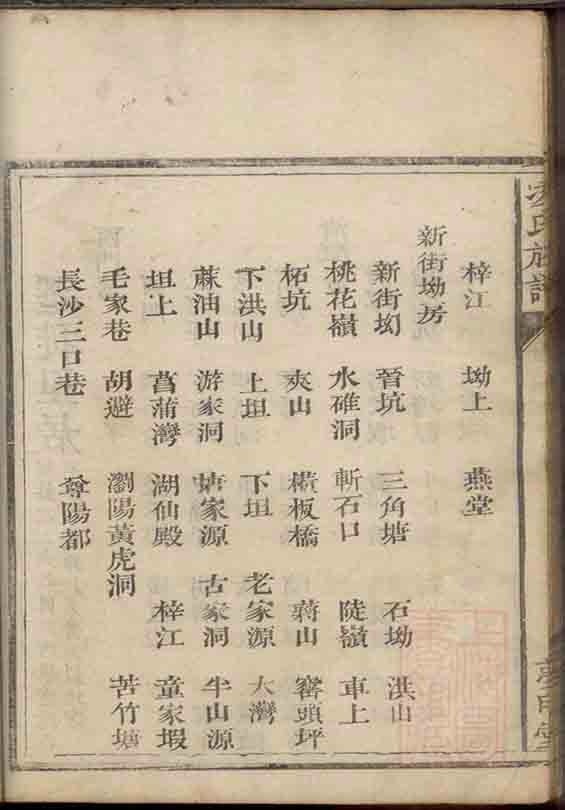 氏族譜
梓江 坳上 燕堂
新街坳房
新街坳 晉坑 三角塘 石坳 洪山
桃花嶺 水碓洞 斬石口 陡嶺 車上
柘坑 夾山 橫板橋 蔣山 窰頭坪
下洪山 上坦 下坦 老家源 大灣
蔴油山 游家洞 塘家源 古家洞 牛山源
坦上 菖蒲灣 湖仙殿 梓江 童家塅
毛家巷 胡避 瀏陽黃虎洞 苦竹塘
長沙三口巷 尊陽都